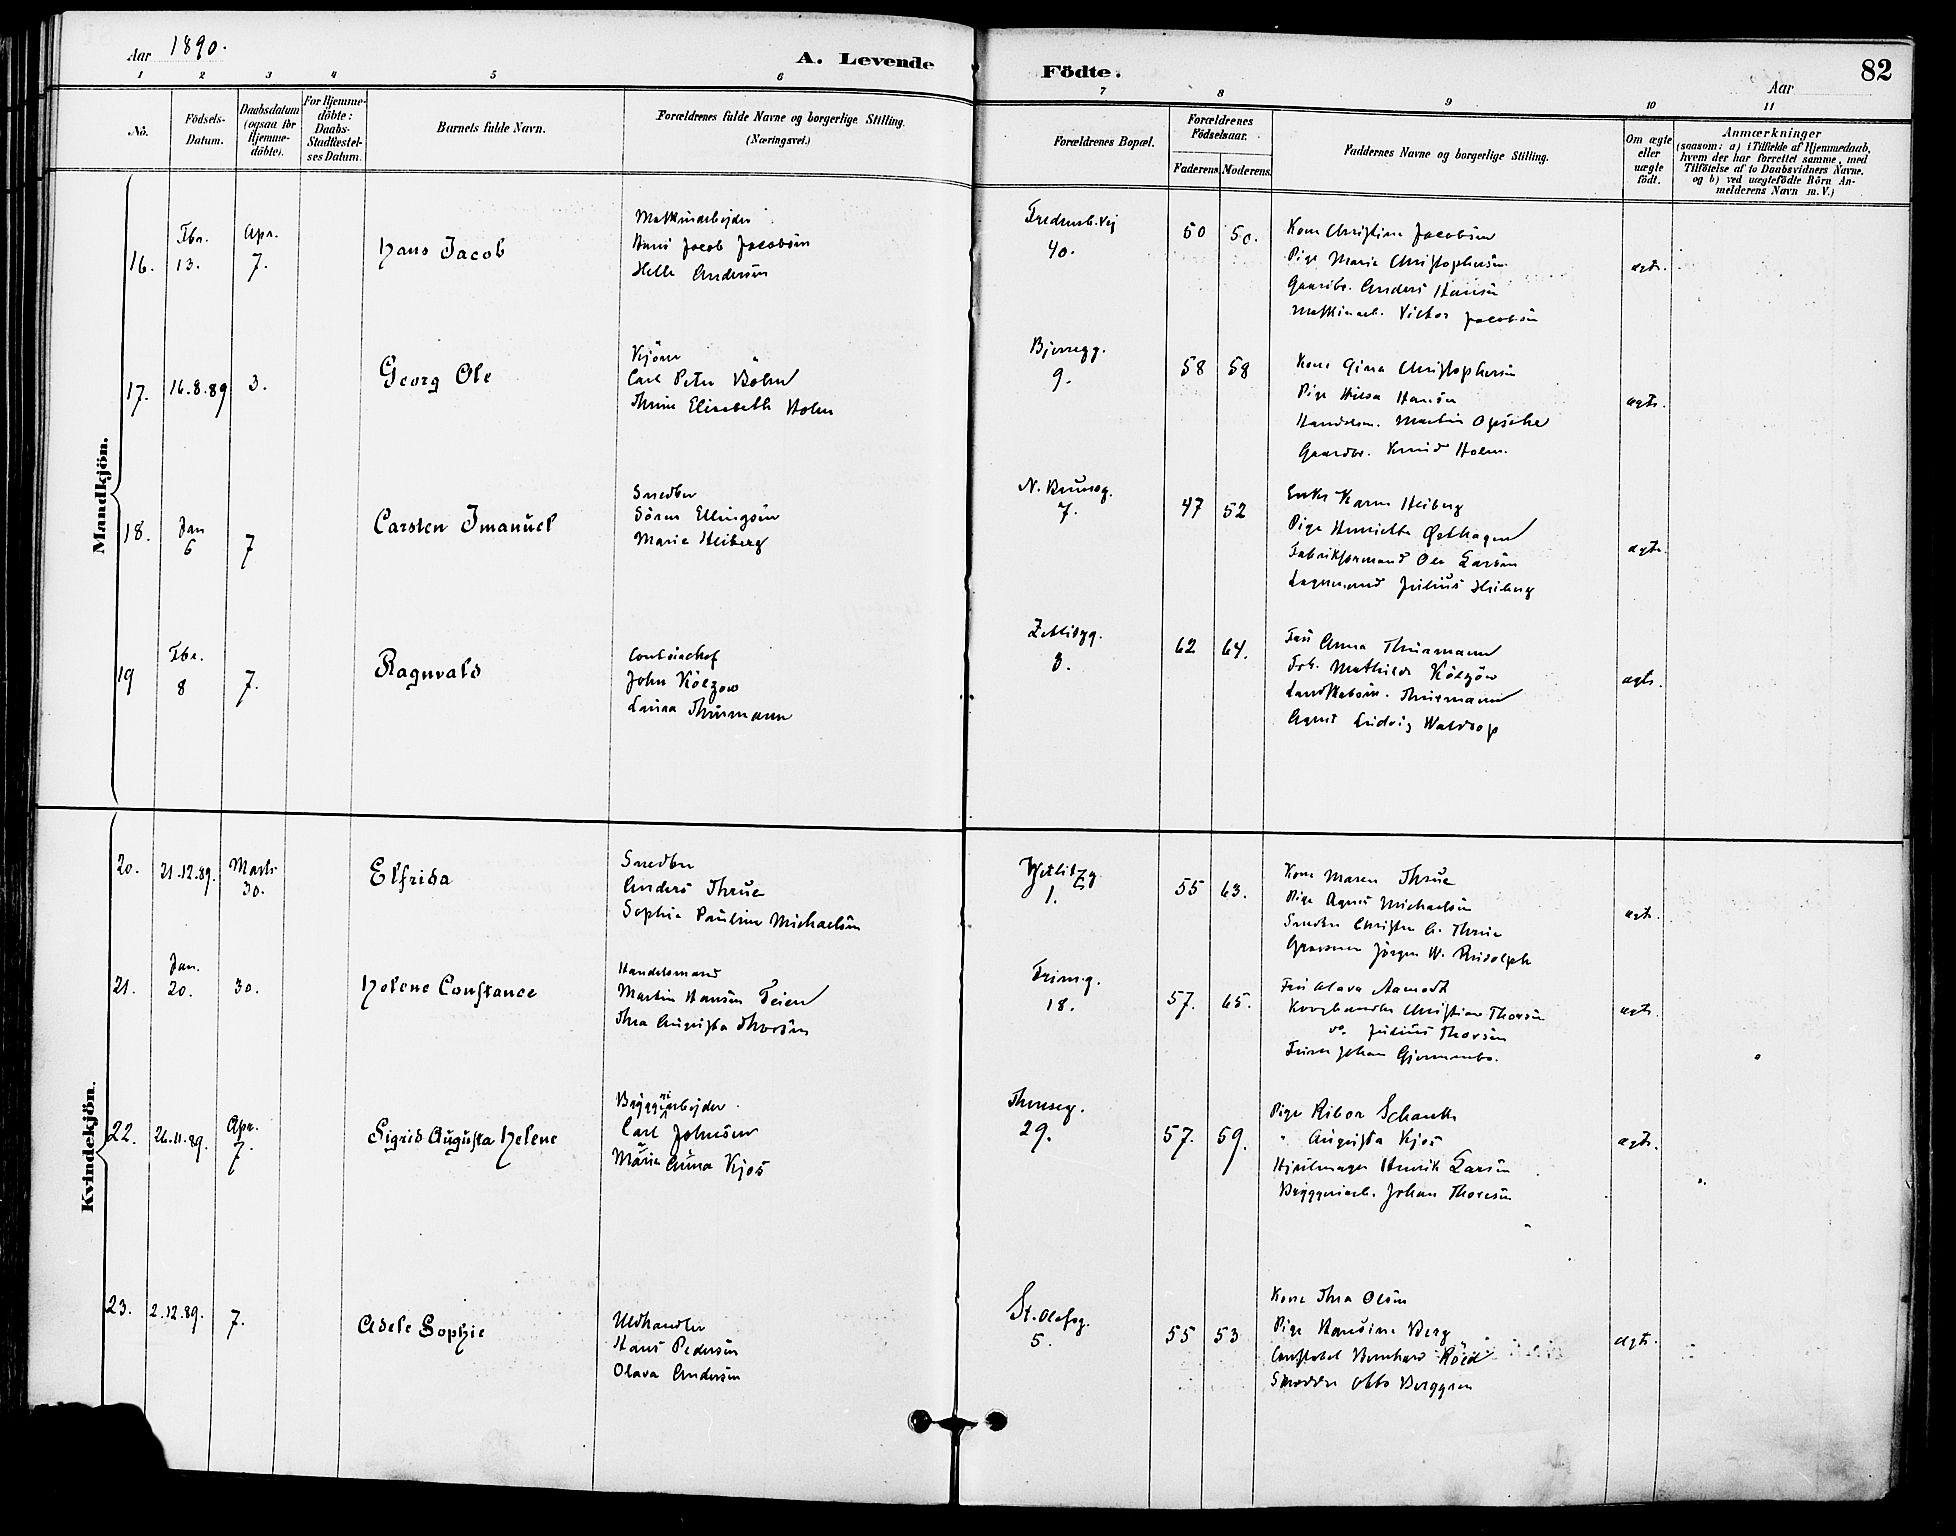 Aar 1890.
A. Levende Födte.
Aar
82
1 2 3 4 5 6 7 8 9 10 11
No.
Födsels-Datum.
Daabsdatum (ogsaa for Hjemme-döbte).
For Hjemme-döbte: Daabs-Stadfæstel-ses Datum.
Barnets fulde Navn.
Forældrenes fulde Navne og borgerlige Stilling.
(Næringsvei.)
Forældrenes Bopæl.
Forældrenes Födselsaar.
Faderens. Moderens.
Faddernes Navne og borgerlige Stilling.
Om ægte eller uægte födt.
Anmærkninger
(saasom: a) i Tilfælde af Hjemmedaab,
hvem der har forrettet samme, med
Tilföielse af to Daabsvidners Navne.
og b) ved uægtefödte Börn An-
melderens Navn m. V.)
Mandkjön.
16.
Fbr. 13.
Apr. 7.
Hans Jacob
Hans Jacob Jacobsen
Helle Andersen
Fredensb.vej
40.
50 50.
Kone Christine Jacobsen
Pige Marie Christophersen
Gaardbr. Anders Hansen
Victor Jacobsen
ægte.
17.
16.8.89
3.
Georg Ole
Kjörer
Carl Peter Böhn
Thrine Elisabeth Holm
Bjerregg.
9.
58 58
Kone Gina Christophersen
Pige Hilda Hansen
Handelsm. Martin
Gaardbr. Knud Holm.
ægte.
18.
Jan 6
7
Carsten Imanuel
Snedker
Sören Ellingsen
Marie Heiberg
N. Brunsg.
7.
47 52
Enke Karen Heiberg
Pige Henriette
Fabrikformand Ole Larsen
Julius Heiberg
ægte.
19
Fbr. 8
7.
Ragnvald
Contorchef
John Kölzow
Laura Thurmann
Zetlitzg.
3.
62 64.
Fru Anna Thurmann
Frk. Mathilde Kölzow
Thurmann
Agent Ludvig
ægte.
Kvindekjön.
20.
21.12.89.
Marts 30.
Elfrida
Snedker
Anders Thrue
Sophie Pauline Michaelsen
Zetlitzg.
1.
55 63.
Kone Maren Thrue
Pige Agnes Michaelsen
Snedker Christen A. Thrue
Jörgen W. Rudolph
ægte.
21.
Jan. 20.
30.
Helene Constance
Handelsmand
Martin Hansen Teien
Thea Augusta Thorsen
18.
57. 65.
Fru Olava Aamodt
Christian Thorsen
do. Julius Thorsen
Johan
ægte.
22.
26.11.89.
Apr. 7.
Sigrid Augusta Helene
Bryggeriarbejder
Carl Johnsen
Marie Anna Kjos
Theresg.
29.
57. 59.
Pige
" Augusta Kjos
Hjulmager Henrik Larsen
Bryggeriarb. Johan Thoresen
ægte.
23.
2.12.89.
7.
Adele Sophie
Uldhandler
Hans Pedersen
Olava Andersen
St. Olafsg.
5.
55 53
Kone Thea Olsen
Pige Hansine Berg
Constabel Bernhard
Skrædder Otto Berggren
ægte.